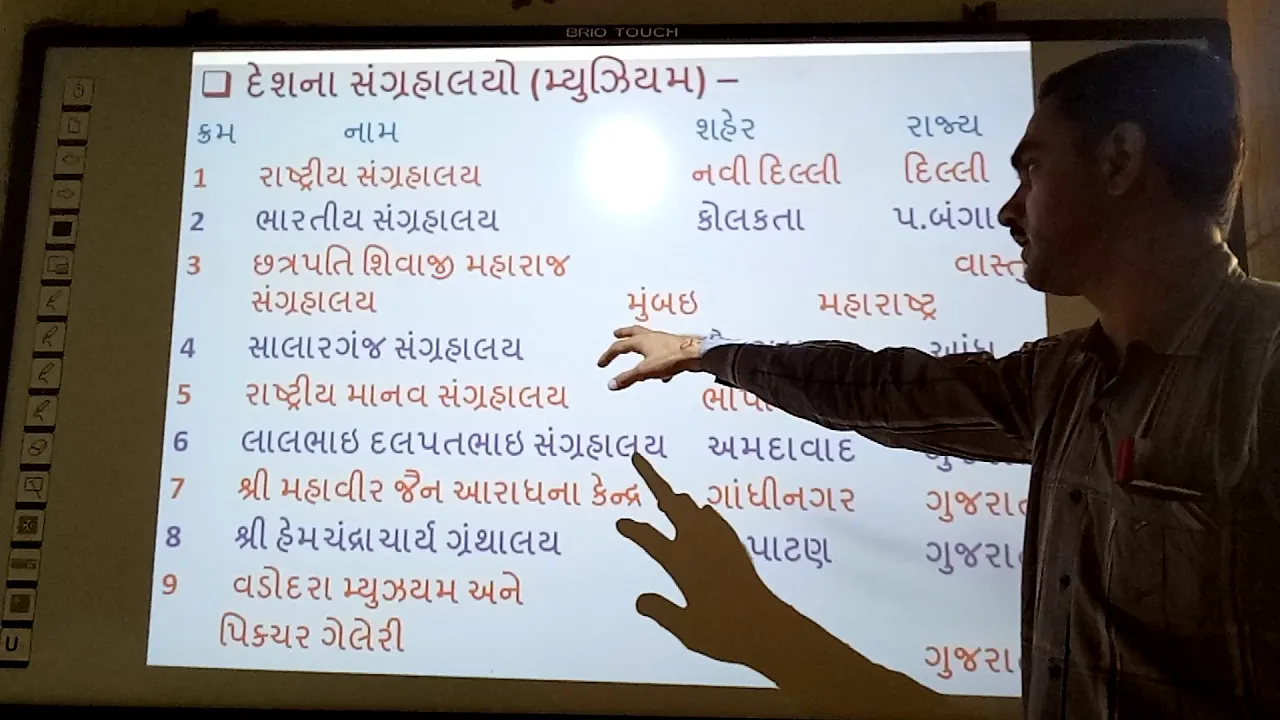 BRIO TOUCH
❑ દેશના સંગ્રહાલયો (મ્યુઝિયમ) –
ક્રમ નામ શહેર રાજ્ય
1 રાષ્ટ્રીય સંગ્રહાલય નવી દિલ્લી દિલ્લી
2 ભારતીય સંગ્રહાલય કોલકતા પ.બંગા
3 છત્રપતિ શિવાજી મહારાજ વાસ્તુ
સંગ્રહાલય મુંબઇ મહારાષ્ટ્ર
4 સાલારગંજ સંગ્રહાલય
5 રાષ્ટ્રીય માનવ સંગ્રહાલય
6 લાલભાઇ દલપતભાઇ સંગ્રહાલય અમદાવાદ
7 શ્રી મહાવીર જૈન આરાધના કેન્દ્ર ગાંધીનગર ગુજરાત
8 શ્રી હેમચંદ્રાચાર્ય ગ્રંથાલય પાટણ ગુજરા
9 વડોદરા મ્યુઝયમ અને
પિક્ચર ગેલેરી ગુજરા